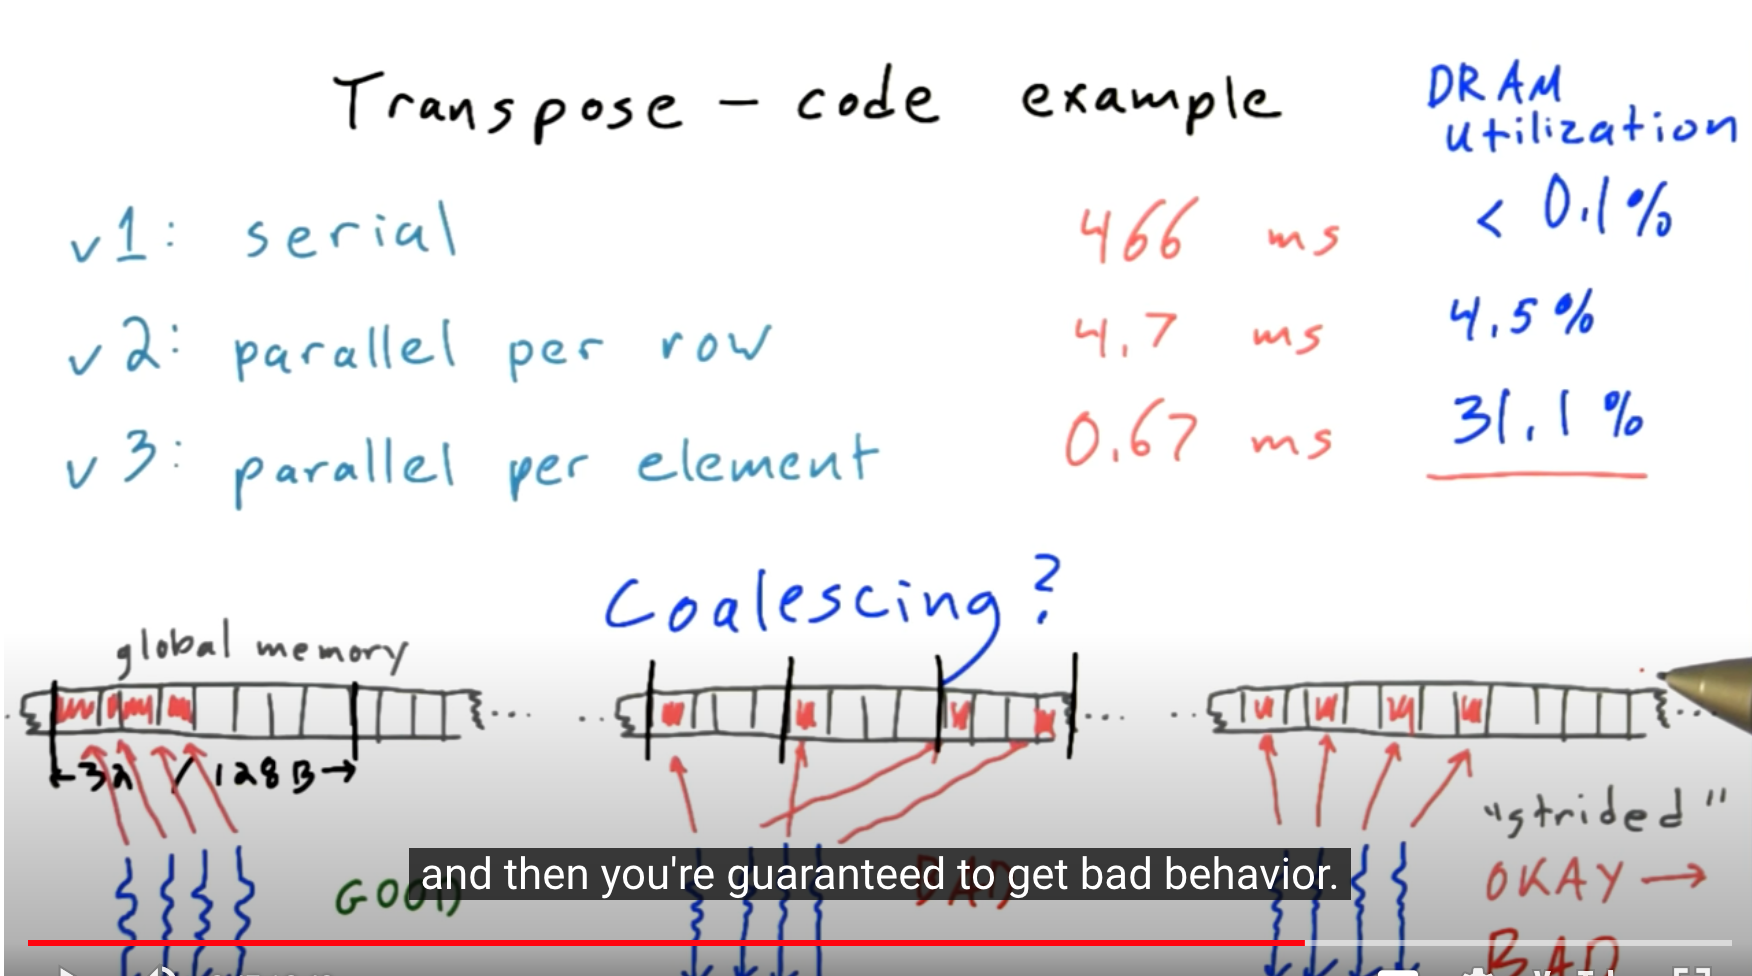 Transpose - code example
DRAM
utilization
v1: serial 466 ms < 0.1%
v2: parallel per row 4.7 ms 4.5%
v3: parallel per element 0.67 ms 31.1%
Coalescing?
global memory
32 / 128B
"strided"
GOOD
BAD
OKAY →
BAD
and then you're guaranteed to get bad behavior.